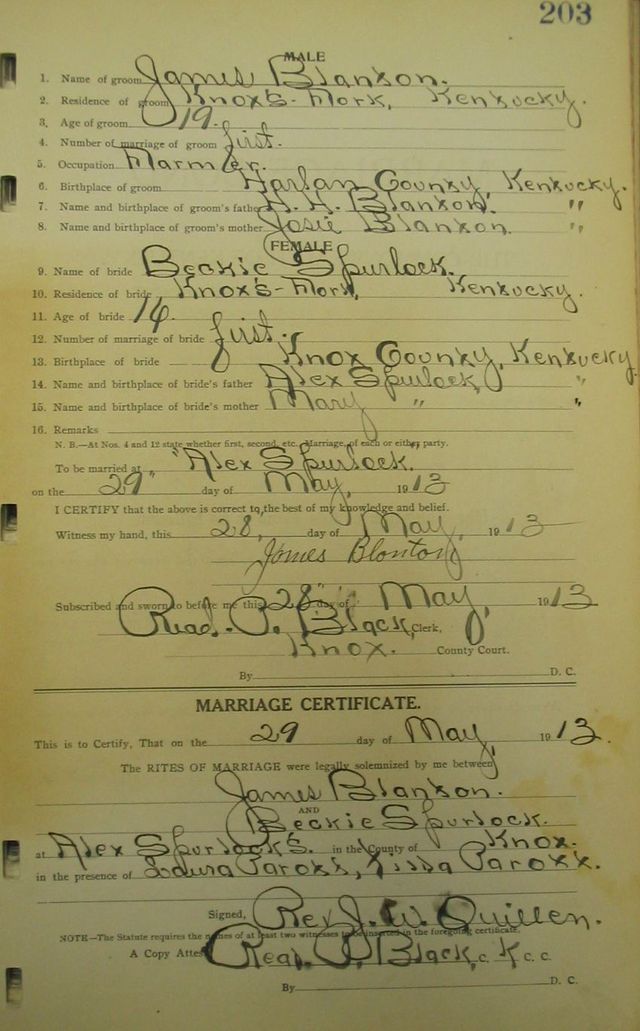 203
MALE
1. Name of groom James Blanton.
2. Residence of groom Knox's-Fork, Kentucky.
3. Age of groom 19.
4. Number of marriage of groom first.
5. Occupation Farmer.
6. Birthplace of groom Harlan County, Kentucky.
7. Name and birthplace of groom's father Blanton. "
8. Name and birthplace of groom's mother Josie Blanton. "
FEMALE
9. Name of bride Beckie Spurlock.
10. Residence of bride Knox's-Fork, Kentucky.
11. Age of bride 16.
12. Number of marriage of bride first.
13. Birthplace of bride Knox County, Kentucky
14. Name and birthplace of bride's father Alex Spurlock, "
15. Name and birthplace of bride's mother Mary " "
16. Remarks
N. B.—At Nos. 4 and 12 state whether first, second, etc. Marriage, of each or either party.
To be married at " Alex Spurlock.
on the 29" day of May, 1913
I CERTIFY that the above is correct to the best of my knowledge and belief.
Witness my hand, this 28, day of May, 1913
James Blonton
Subscribed and sworn to before me this 28" day of May, 1913
Read. P. Black, Clerk,
Knox. County Court.
By D. C.
MARRIAGE CERTIFICATE.
This is to Certify, That on the 29 day of May, 1913.
The RITES OF MARRIAGE were legally solemnized by me between
James Blanton.
AND
Beckie Spurlock.
at Alex Spurlock's. in the County of Knox.
in the presence of Laura Parott, Parott.
Signed, Rev J. W. Quillen.
NOTE—The Statute requires the names of at least two witnesses to be inserted in the foregoing certificate.
A Copy Attest Read. P. Black, C. K C. C.
By D. C.